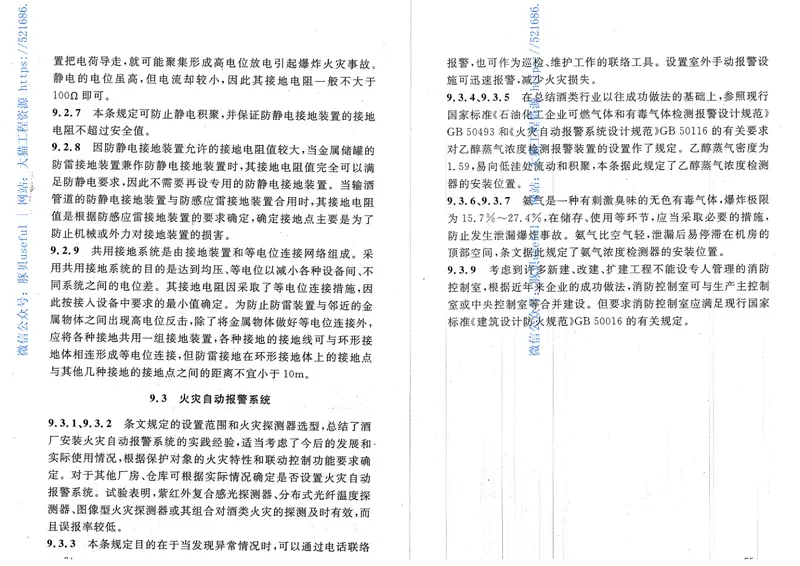 置把电荷导走，就可能聚集形成高电位放电引起爆炸火灾事故。
静电的电位虽高，但电流却较小，因此其接地电阻一般不大于
100Ω即可。
9.2.7 本条规定可防止静电积聚，并保证防静电接地装置的接地
电阻不超过安全值。
9.2.8 因防静电接地装置允许的接地电阻值较大，当金属储罐的
防雷接地装置兼作防静电接地装置时，其接地电阻值完全可以满
足防静电要求，因此不需要再设专用的防静电接地装置。当输酒
管道的防静电接地装置与防感应雷接地装置合用时，其接地电阻
值是根据防感应雷接地装置的要求确定，确定接地点主要是为了
防止机械或外力对接地装置的损害。
9.2.9 共用接地系统是由接地装置和等电位连接网络组成。采
用共用接地系统的目的是达到均压、等电位以减小各种设备间、不
同系统之间的电位差。其接地电阻因采取了等电位连接措施，因
此按接入设备中要求的最小值确定。为防止防雷装置与邻近的金
属物体之间出现高电位反击，除了将金属物体做好等电位连接外，
应将各种接地共用一组接地装置，各种接地的接地线可与环形接
地体相连形成等电位连接，但防雷接地在环形接地体上的接地点
与其他几种接地的接地点之间的距离不宜小于10m。
9.3 火灾自动报警系统
9.3.1、9.3.2 条文规定的设置范围和火灾探测器选型，总结了酒
厂安装火灾自动报警系统的实践经验，适当考虑了今后的发展和
实际使用情况，根据保护对象的火灾特性和联动控制功能要求确
定。对于其他厂房、仓库可根据实际情况确定是否设置火灾自动
报警系统。试验表明，紫红外复合感光探测器、分布式光纤温度探
测器、图像型火灾探测器或其组合对酒类火灾的探测及时有效，而
且误报率较低。
9.3.3 本条规定目的在于当发现异常情况时，可以通过电话联络
报警，也可作为巡检、维护工作的联络工具。设置室外手动报警设
施可迅速报警，减少火灾损失。
9.3.4、9.3.5 在总结酒类行业以往成功做法的基础上，参照现行
国家标准《石油化工企业可燃气体和有毒气体检测报警设计规范》
GB 50493和《火灾自动报警系统设计规范》GB 50116的有关要求
对乙醇蒸气浓度检测报警装置的设置作了规定。乙醇蒸气密度为
1.59，易向低洼处流动和积聚，本条据此规定了乙醇蒸气浓度检测
器的安装位置。
9.3.6、9.3.7 氨气是一种有刺激臭味的无色有毒气体，爆炸极限
为15.7%～27.4%，在储存、使用等环节，应当采取必要的措施，
防止发生泄漏爆炸事故。氨气比空气轻，泄漏后易停滞在机房的
顶部空间，条文据此规定了氨气浓度检测器的安装位置。
9.3.9 考虑到许多新建、改建、扩建工程不能设专人管理的消防
控制室，根据近年来企业的成功做法，消防控制室可与生产主控制
室或中央控制室等合并建设。但要求消防控制室应满足现行国家
标准《建筑设计防火规范》GB 50016的有关规定。
微信公众号：豚贝useful | 网站：大猫工程资源 https://521686.
微信公众号：豚贝useful | 网站：大猫工程资源 https://521686.